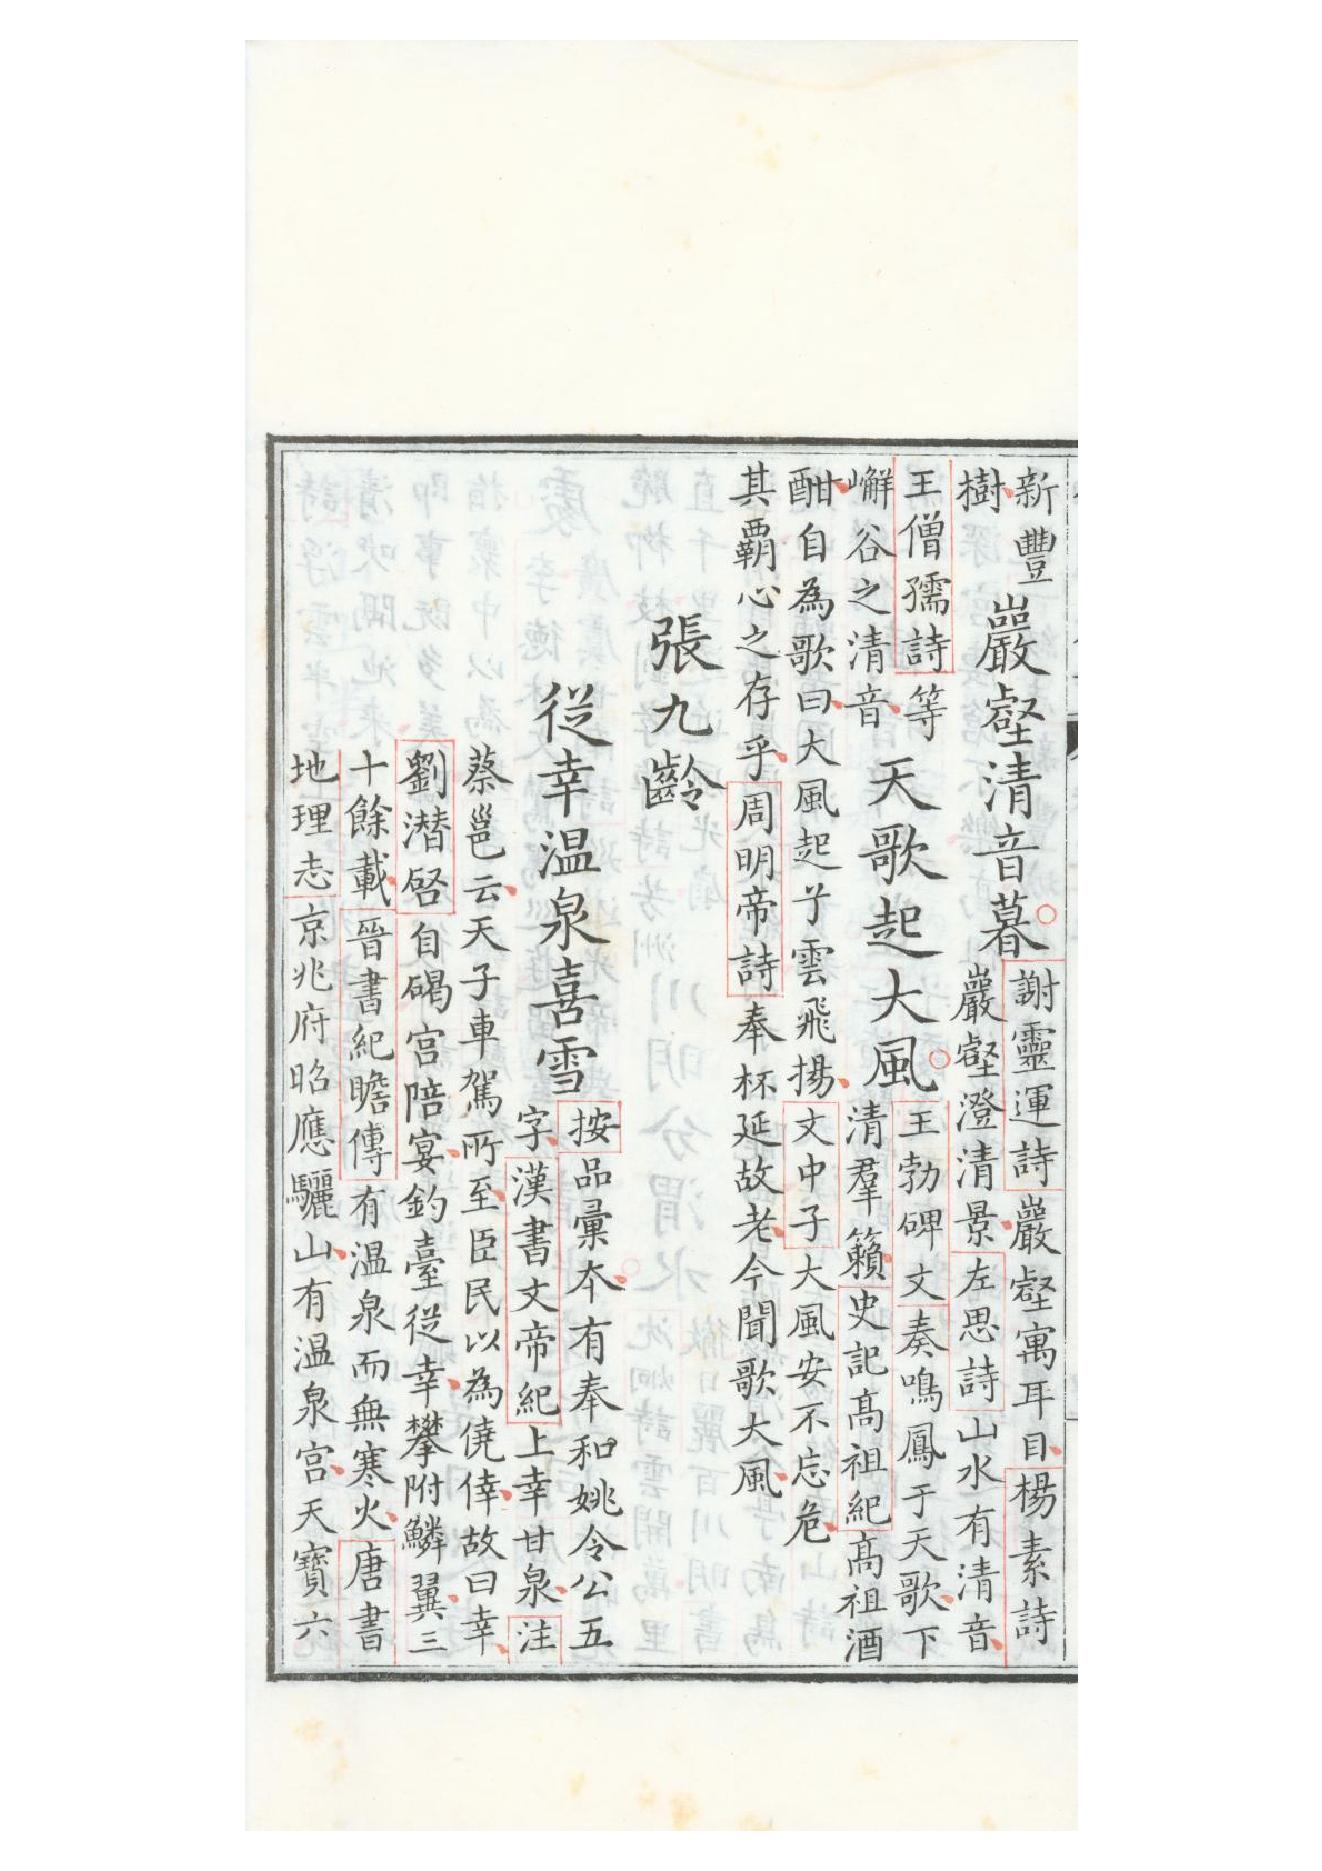 新豐
樹
巖壑清音暮
謝靈運詩巖壑寓耳目楊素詩
巖壑澄清景左思詩山水有清音
王僧孺詩等
嶰谷之清音
天歌起大風
王勃碑文奏鳴鳳于天歌下
清羣籟史記髙祖紀髙祖酒
酣自為歌曰大風起兮雲飛揚文中子大風安不忘危
其覇心之存乎周明帝詩奉杯延故老今聞歌大風
張九齡
從幸温泉喜雪
按品彙夲有奉和姚令公五
字漢書文帝紀上幸甘泉注
蔡邕云天子車駕所至臣民以為僥倖故曰幸
劉潜啓自碣宫陪宴釣臺從幸攀附鱗翼三
十餘載晉書紀瞻傳有温泉而無寒火唐書
地理志京兆府昭應驪山有温泉宫天寶六